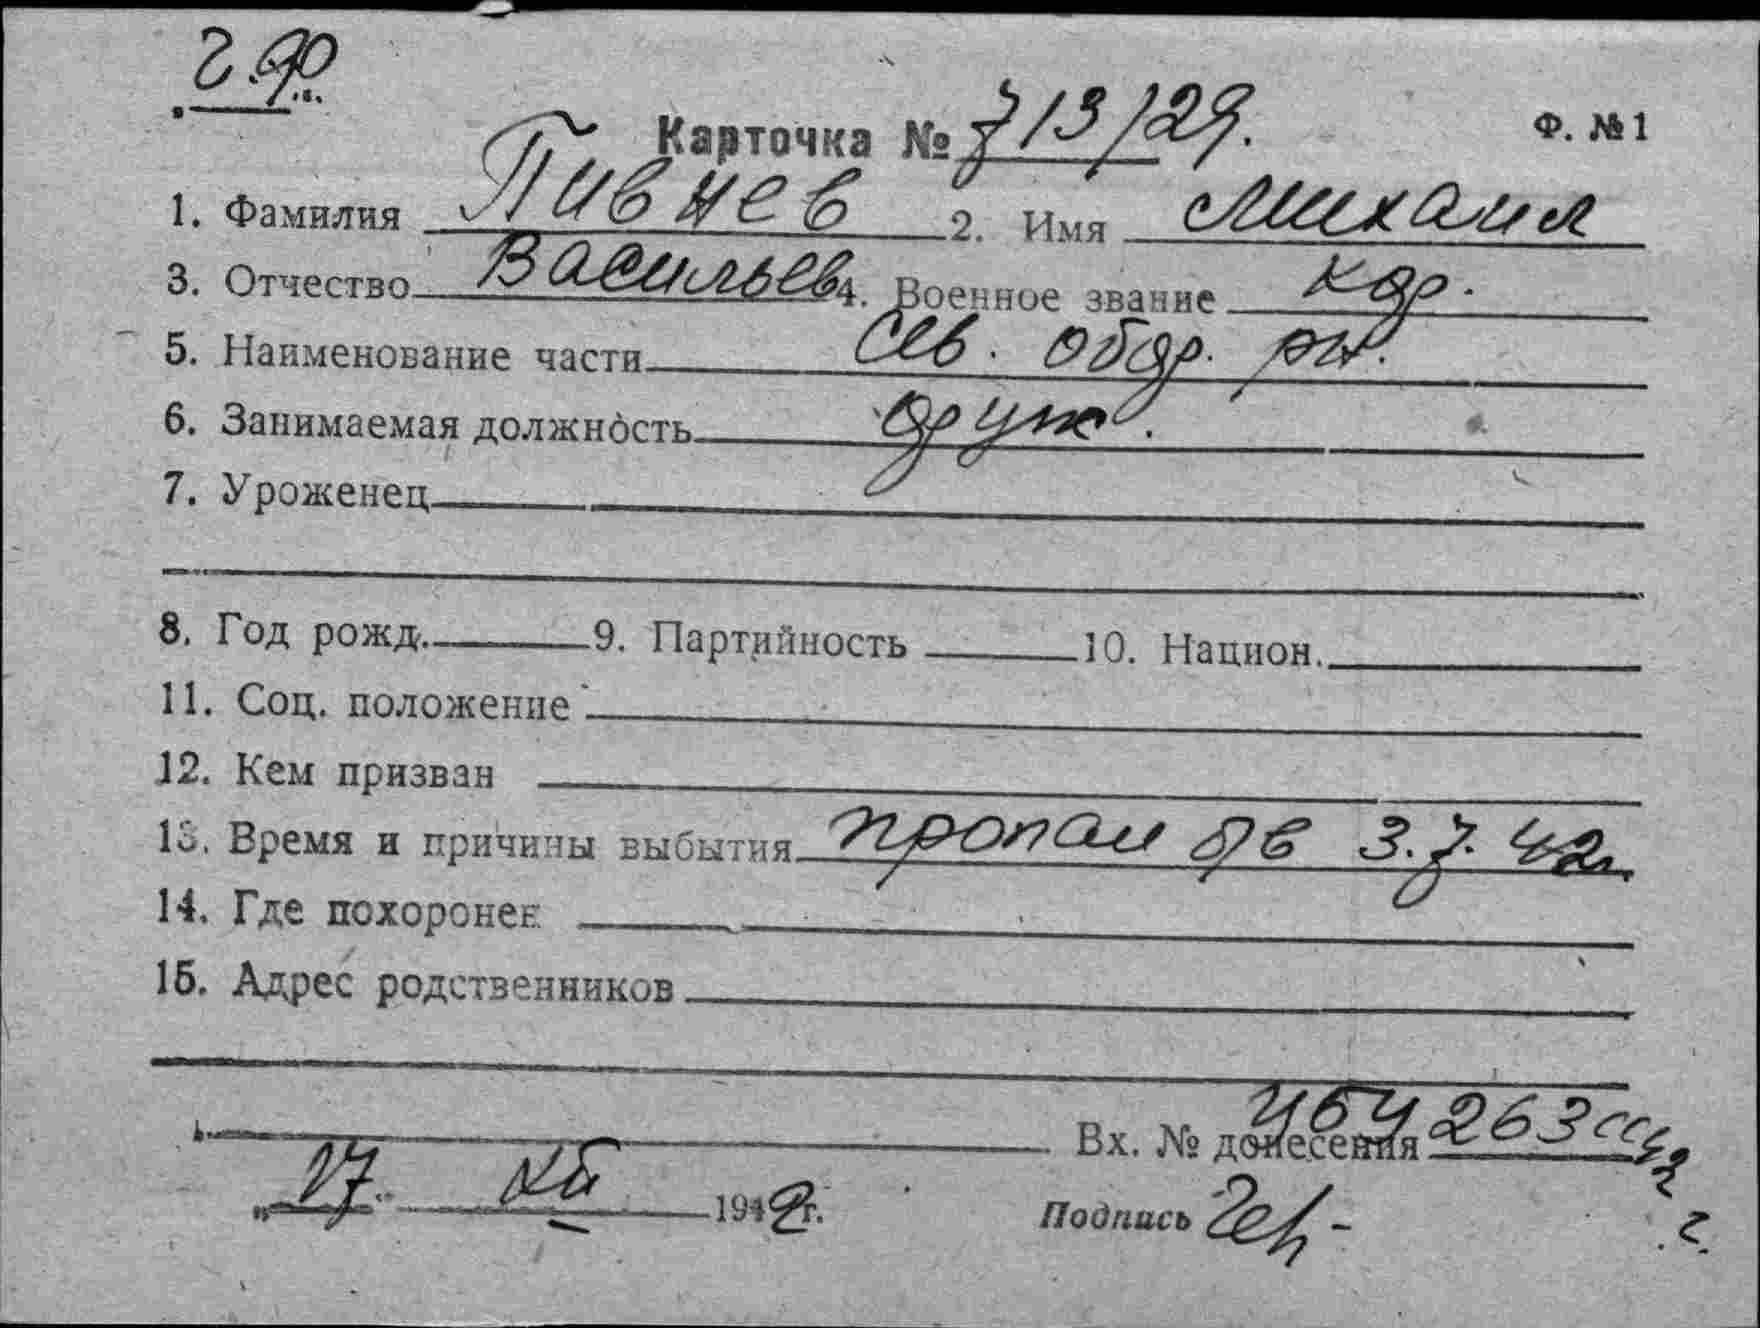 Карточка № 713/29. Ф. № 1
1. Фамилия Пивнев 2. Имя Михаил
3. Отчество Васильев 4. Военное звание кдр.
5. Наименование части Сев. обор. рн.
6. Занимаемая должность
7. Уроженец
8. Год рожд. 9. Партийность 10. Национ.
11. Соц. положение
12. Кем призван
13. Время и причины выбытия пропал б/в 3.7.42г.
14. Где похоронен
15. Адрес родственников
Вх. № донесения 263сс
17. 1942г. Подпись